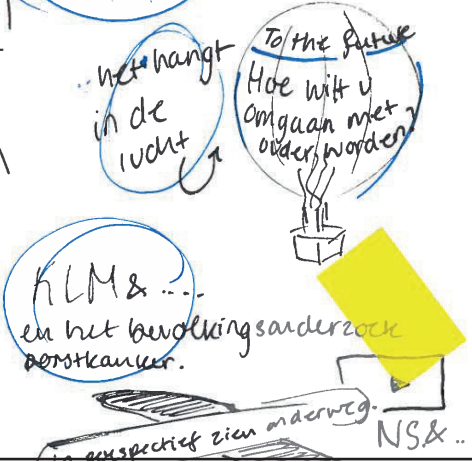 ..het hangt
in de
lucht
To the future
Hoe wilt u
omgaan met
ouder worden?
KLM & ....
en het bevolkingsonderzoek
borstkanker.
in perspectief zien onderweg.
NS & ..